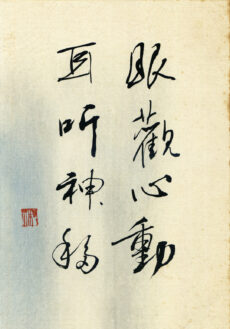 眼觀心動
耳听神移